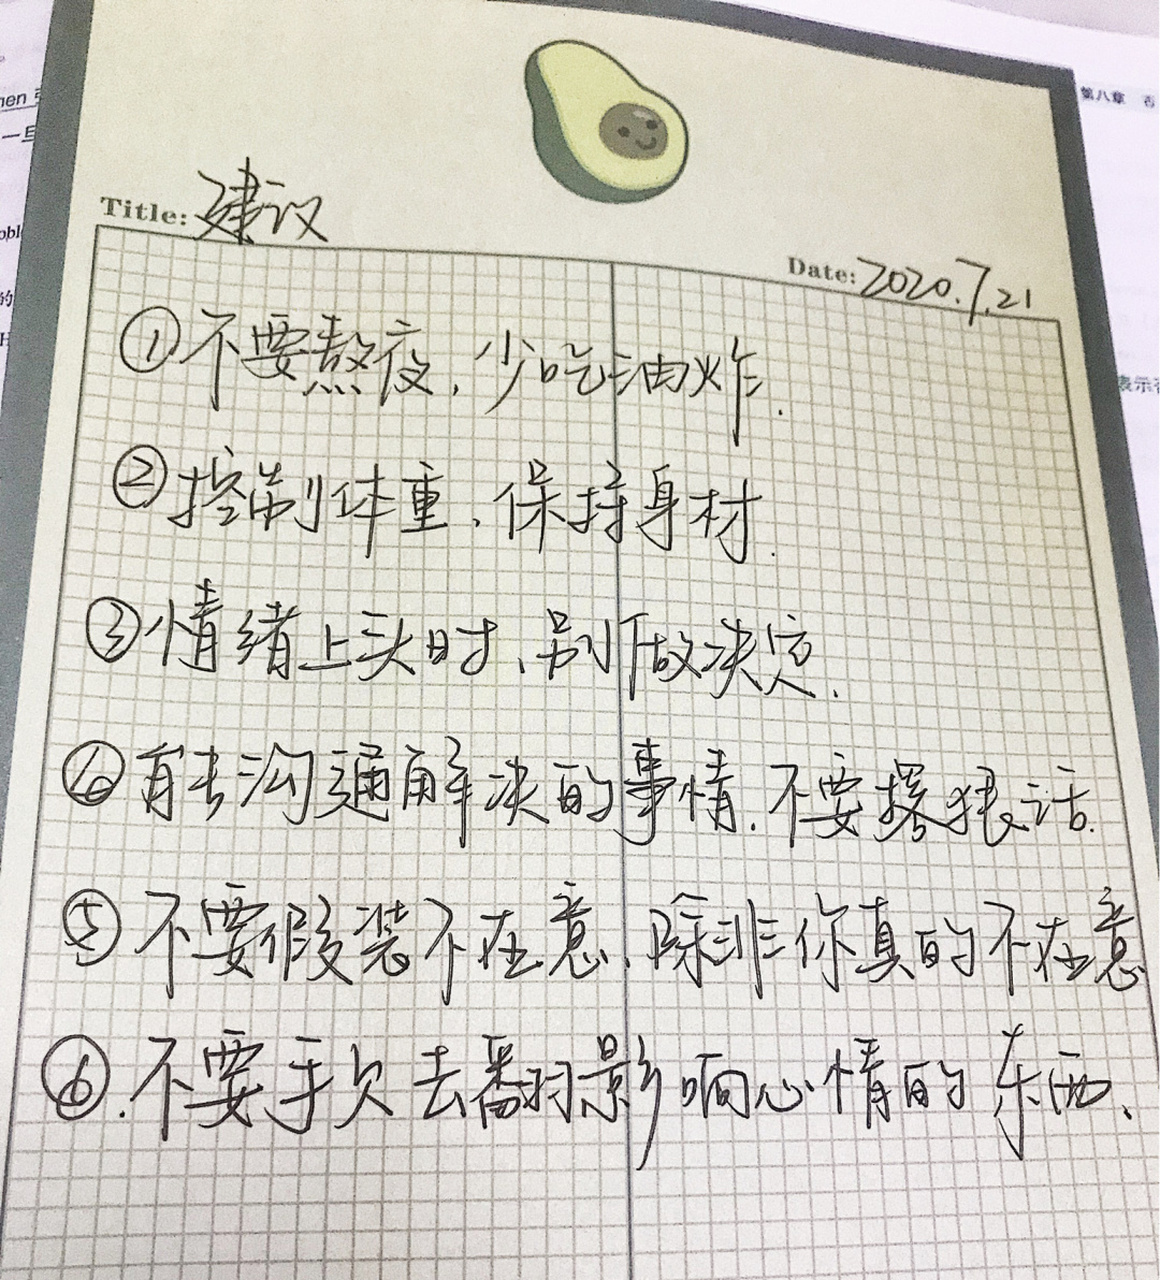 hen
一旦
的
第八章 古
表示
Title: 建议
Date: 2020.7.21
①不要熬夜,少吃油炸.
②控制体重,保持身材.
③情绪上头时,别做决定.
④有去沟通解决的事情.不要撂狠话.
⑤不要假装不在意,除非你真的不在意
⑥.不要手欠去翻影响心情的东西、